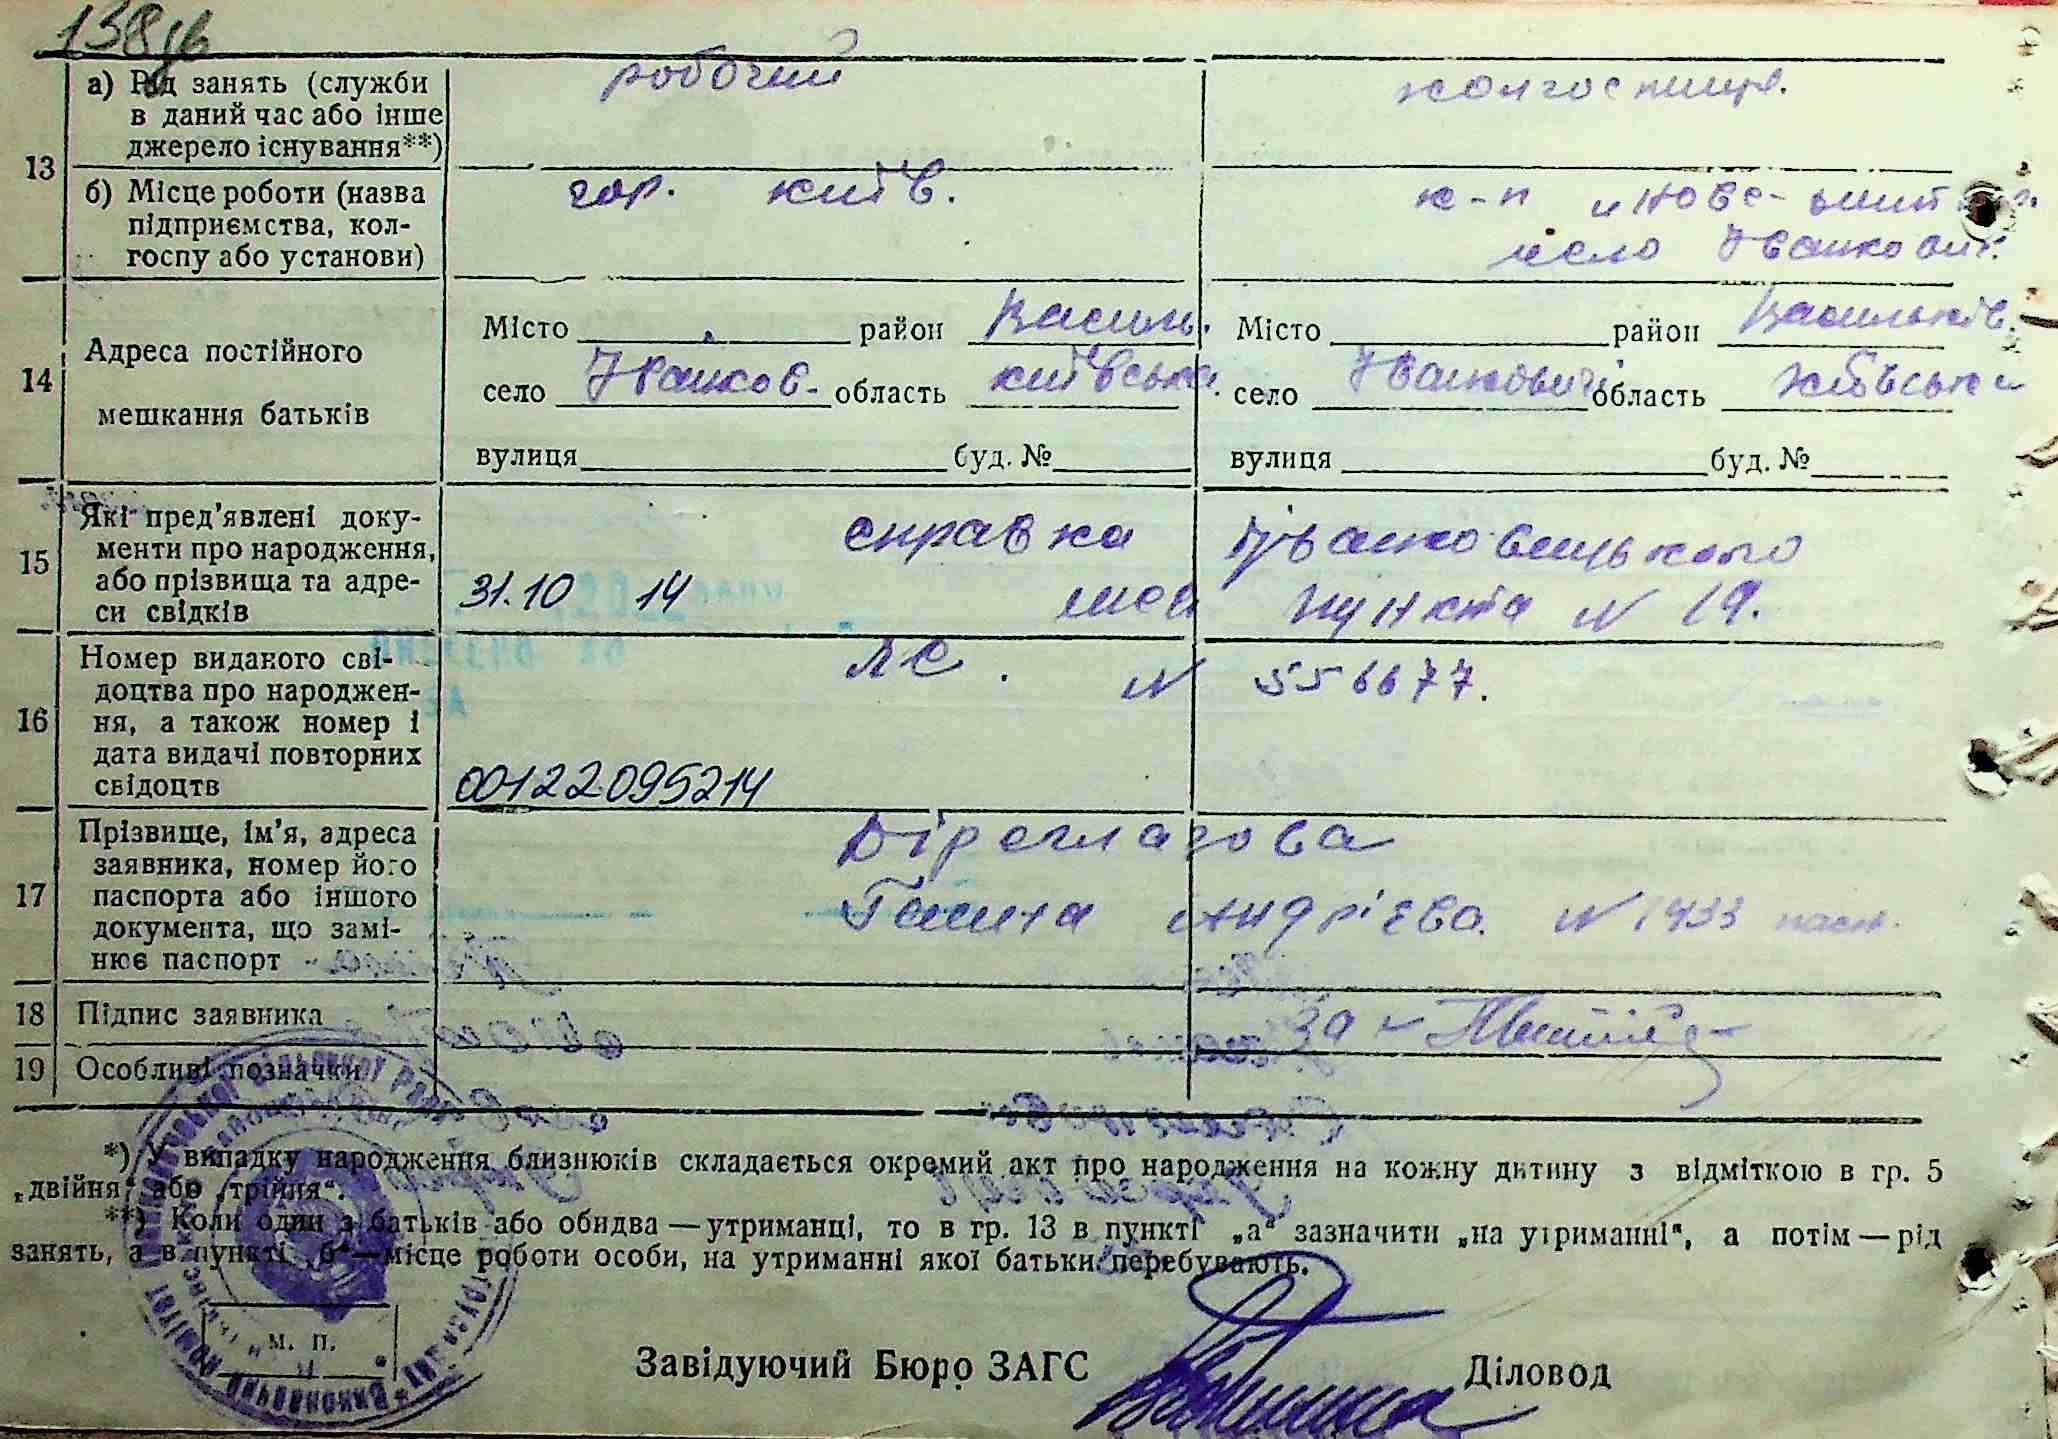 138
а) Рід занять (служби
в даний час або інше
джерело існування**)
робочий
колгоспниця.
13
б) Місце роботи (назва
підприємства, кол-
госпу або установи)
гор. київ.
к-п
село Іванкович.
14
Адреса постійного
мешкання батьків
Місто район Васильк.
село Іванков. область київська
вулиця буд. №
Місто район Васильків.
село Іванковичі область київська
вулиця буд. №
15
Які пред'явлені доку-
менти про народження,
або прізвища та адре-
си свідків
справка Іванковицького
31.10 14
мед пункта N 19.
16
Номер виданого сві-
доцтва про народжен-
ня, а також номер і
дата видачі повторних
свідоцтв
N 556677.
00122095214
17
Прізвище, ім'я, адреса
заявника, номер його
паспорта або іншого
документа, що замі-
нює паспорт
Біроглазова
Ганна Андрієва. N 1433 пасп.
18
Підпис заявника
за
19
Особливі позначки
*) У випадку народження близнюків складається окремий акт про народження на кожну дитину з відміткою в гр. 5
„двійня“ або „трійня“.
**) Коли один з батьків або обидва — утриманці, то в гр. 13 в пункті „а“ зазначити „на утриманні“, а потім — рід
занять, а в пункті „б“ — місце роботи особи, на утриманні якої батьки перебувають.
М. П.
Завідуючий Бюро ЗАГС
Діловод